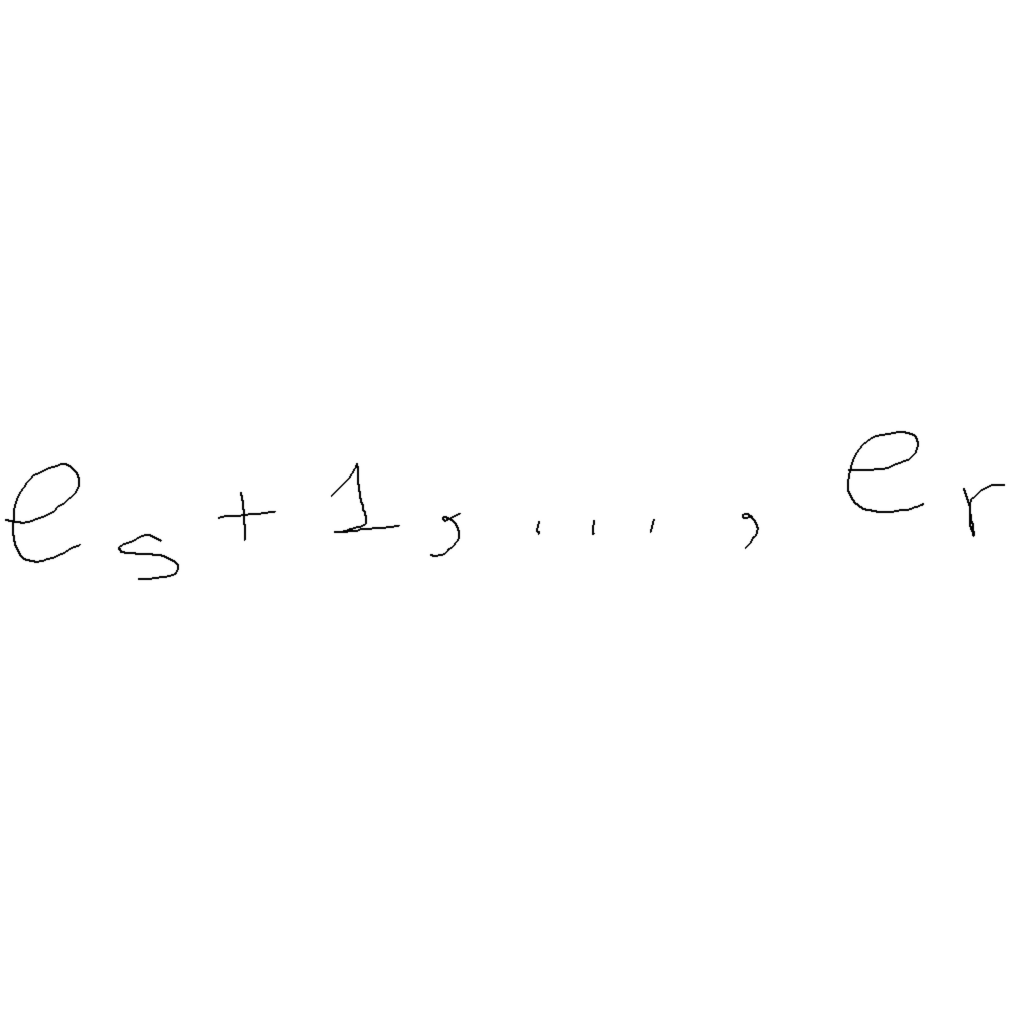 e_s + 1, ..., e_r